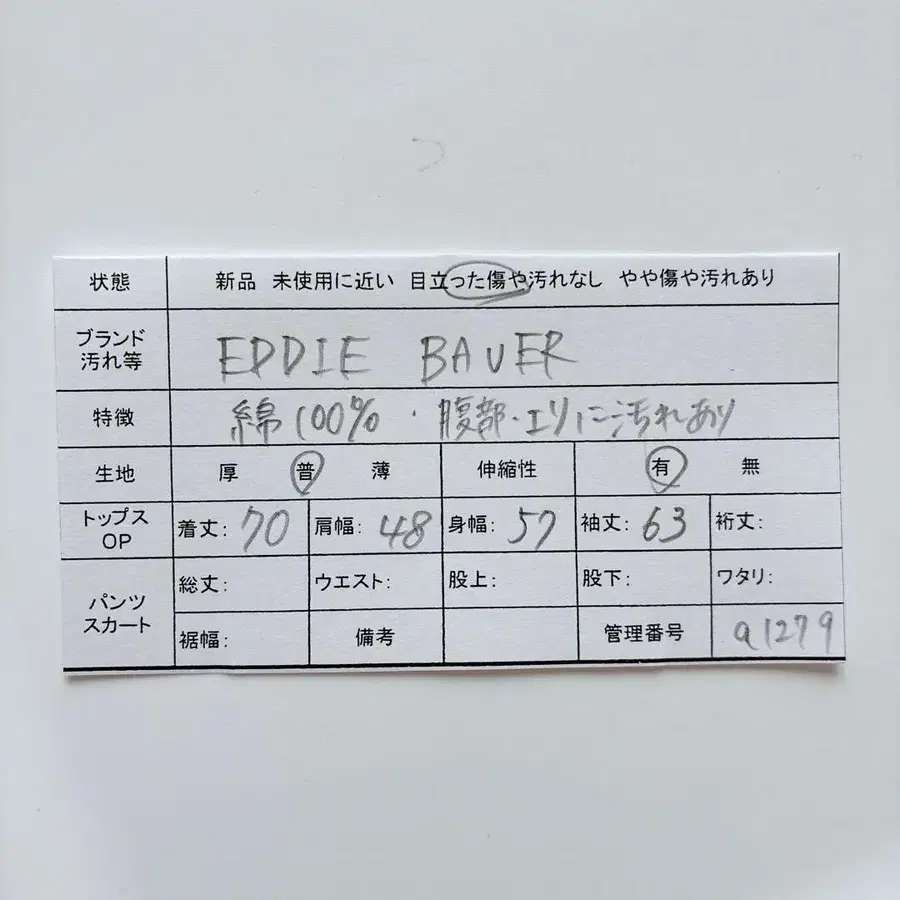 状態 新品 未使用に近い 目立った傷や汚れなし やや傷や汚れあり
ブランド
汚れ等 EDDIE BAUER
特徴 綿100%・腹部・エリに汚れあり
生地 厚 普 薄 伸縮性 有 無
トップス
OP 着丈: 70 肩幅: 48 身幅: 57 袖丈: 63 裄丈:
パンツ
スカート 総丈: ウエスト: 股上: 股下: ワタリ:
裾幅: 備考 管理番号 a1279